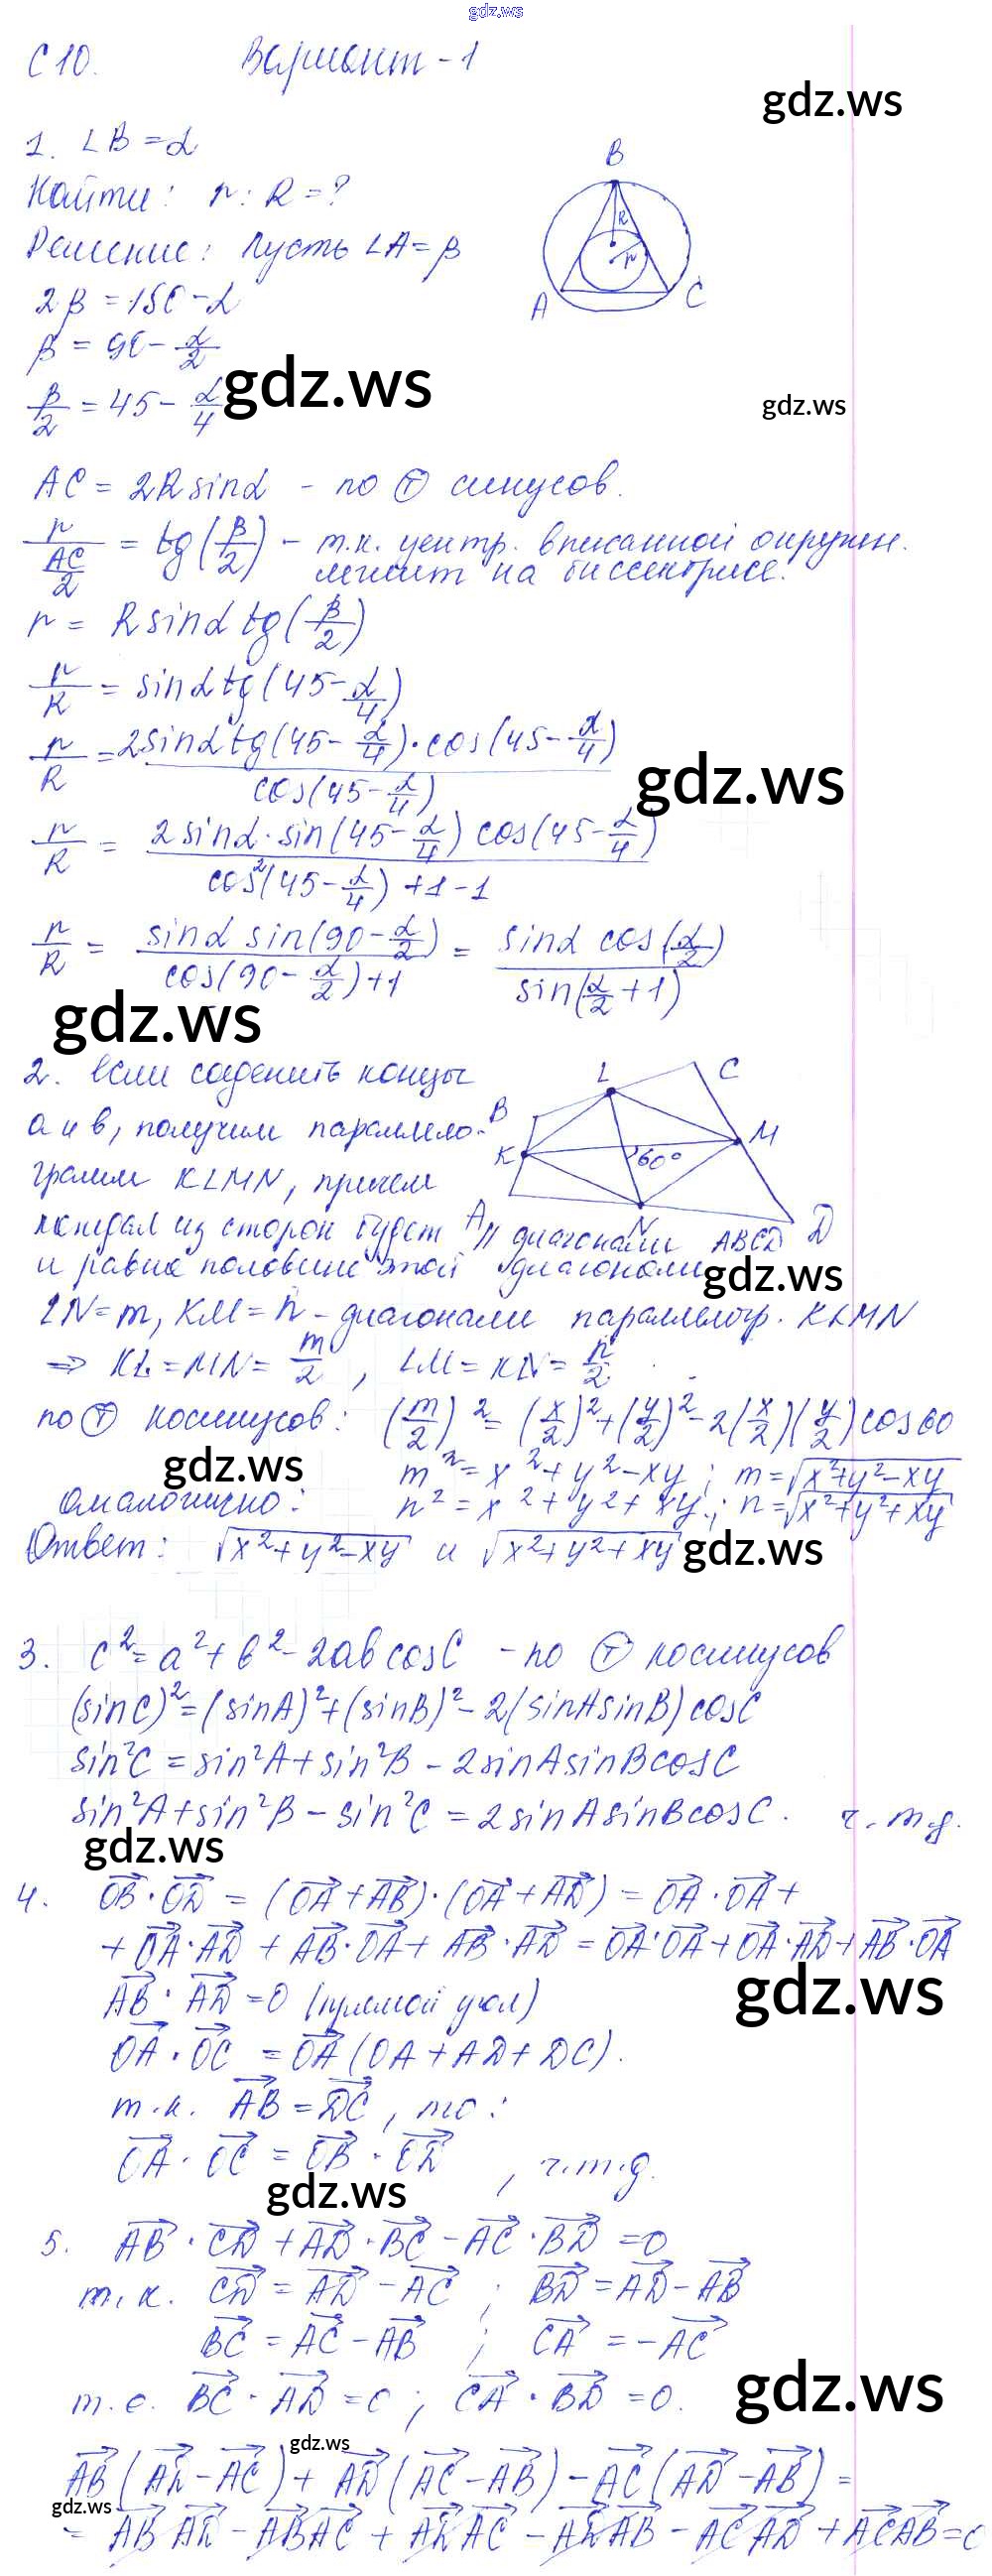 gdz.ws
С 10. Вариант - 1
gdz.ws
1. ∠B = α
Найти: r : R = ?
Решение: Пусть ∠A = β
B
R
r
A C
2β = 180 - α
β = 90 - α/2
β/2 = 45 - α/4
gdz.ws
gdz.ws
AC = 2R sinα - по Ⓣ синусов.
r/(AC/2) = tg(β/2) - т.к. центр. вписанной окружн.
лежит на биссектрисе.
r = R sinα tg(β/2)
r/R = sinα tg(45 - α/4)
r/R = 2sinα tg(45 - α/4) · cos(45 - α/4) / cos(45 - α/4)
gdz.ws
r/R = 2sinα · sin(45 - α/4) cos(45 - α/4) / cos²(45 - α/4) + 1 - 1
r/R = sinα sin(90 - α/2) / cos(90 - α/2) + 1 = sinα cos(α/2) / sin(α/2 + 1)
gdz.ws
2. Если соденить концы
а и в, получим параллело-
грамм KLMN, причем
каждая из сторон будет || диагонали ABCD
и равна половине этой диагонали
gdz.ws
L C
B
K 60° M
A N D
LN = m, KM = n - диагонали параллелогр. KLMN
=> KL = MN = m/2 , LM = KN = n/2.
по Ⓣ косинусов: (m/2)² = (x/2)² + (y/2)² - 2(x/2)(y/2) cos60
gdz.ws
m² = x² + y² - xy ; m = √x² + y² - xy
аналогично: n² = x² + y² + xy.; n = √x² + y² + xy
Ответ: √x² + y² - xy и √x² + y² + xy
gdz.ws
3. c² = a² + b² - 2ab cosC - по Ⓣ косинусов
(sinC)² = (sinA)² + (sinB)² - 2(sinAsinB) cosC
sin²C = sin²A + sin²B - 2sinAsinBcosC
sin²A + sin²B - sin²C = 2sinAsinBcosC. ч.т.д.
gdz.ws
4. OB · OD = (OA + AB) · (OA + AD) = OA · OA +
+ OA · AD + AB · OA + AB · AD = OA · OA + OA · AD + AB · OA
gdz.ws
AB · AD = 0 (прямой угол)
OA · OC = OA (OA + AD + DC).
т.к. AB = DC, то:
OA · OC = OB · OD , ч.т.д.
gdz.ws
5. AB · CD + AD · BC - AC · BD = 0
т.к. CD = AD - AC ; BD = AD - AB
BC = AC - AB ; CA = -AC
gdz.ws
т.е. BC · AD = 0 ; CA · BD = 0.
gdz.ws
AB (AD - AC) + AD (AC - AB) - AC (AD - AB) =
gdz.ws
= AB AD - AB AC + AD AC - AD AB - AC AD + AC AB = 0